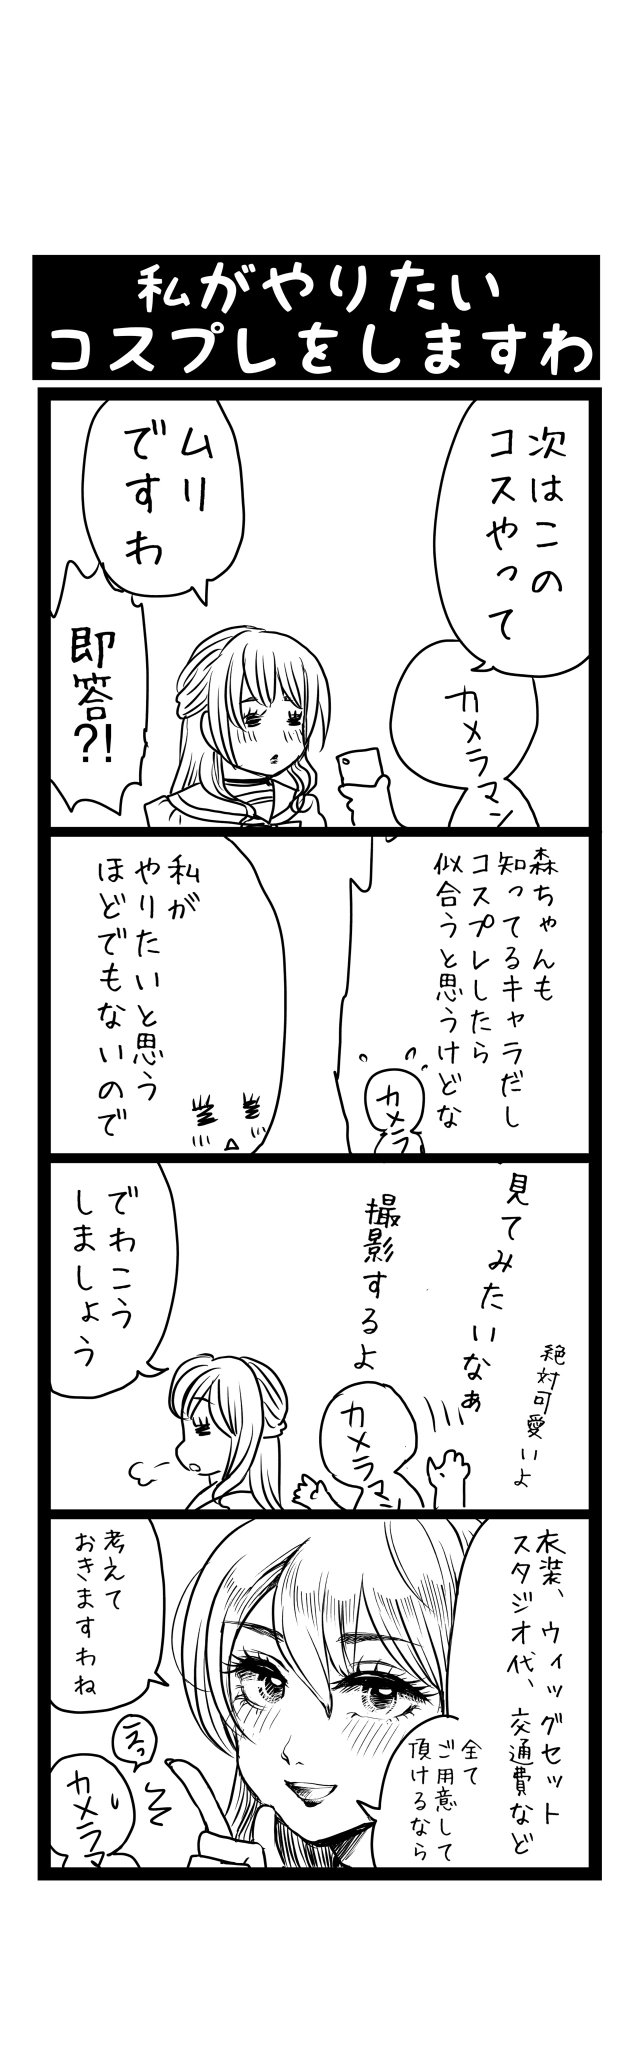 私がやりたい
コスプレをしますわ
次はこの
コスやって
カメラマン
ムリ
ですわ
即答?!
森ちゃんも
知ってるキャラだし
コスプレしたら
似合うと思うけどな
カメラ
私が
やりたいと思う
ほどでもないので
絶対可愛いよ
見てみたいなぁ
撮影するよ
カメラマン
でわこう
しましょう
衣装、ウィッグセット
スタジオ代、交通費など
全て
ご用意して
頂けるなら
考えて
おきますわね
えっ
カメラマ